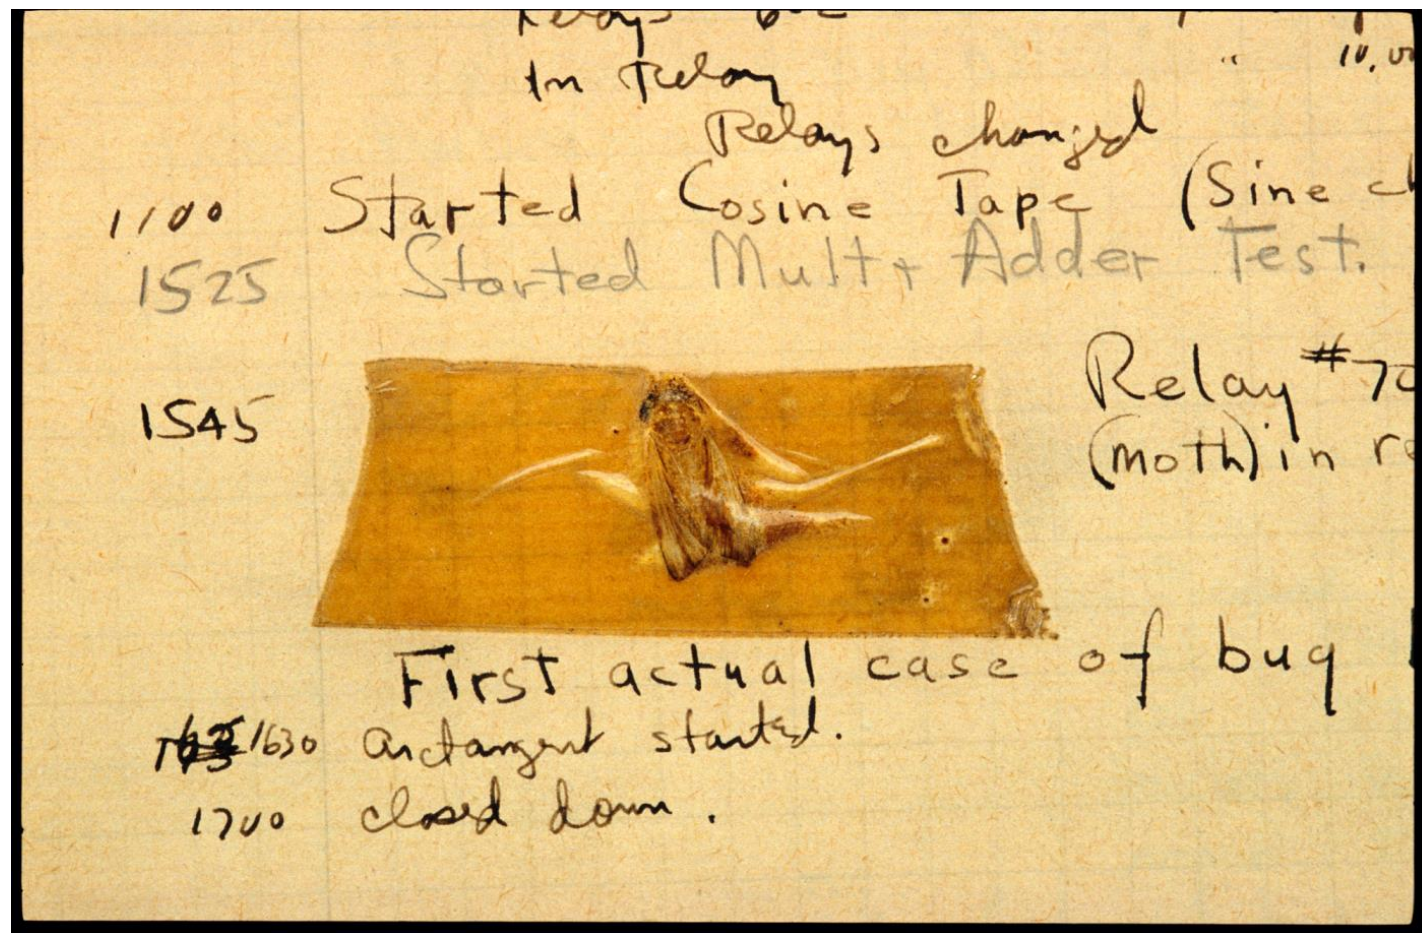 In Relay
Relays changed
1100 Started Cosine Tape (Sine
1525 Started Mult + Adder Test.
1545 Relay #70
(moth) in re
First actual case of bug
1630 arctangent started.
1700 closed down.